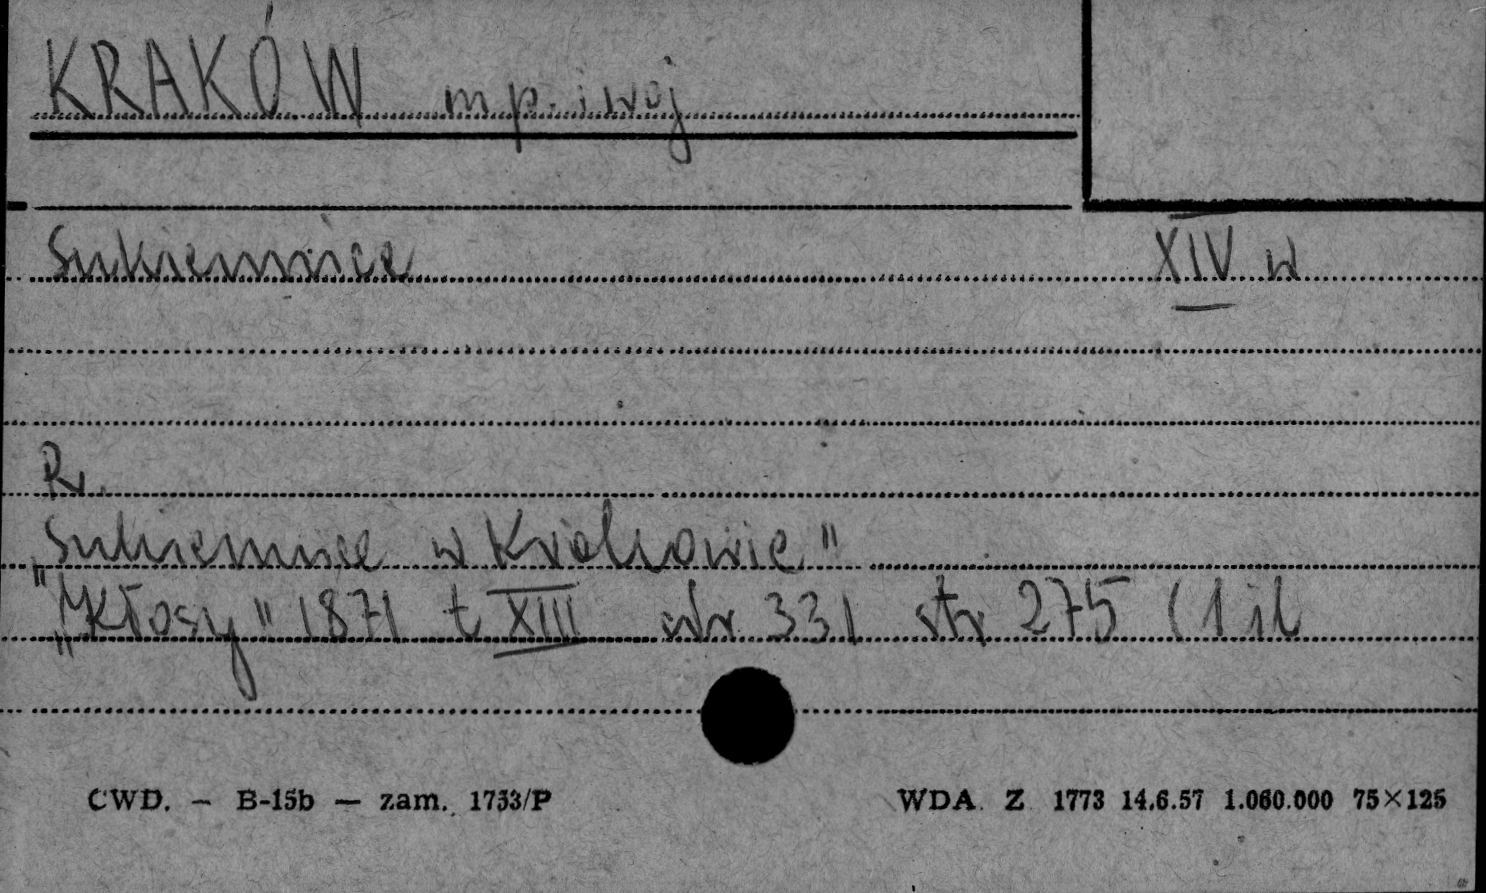 KRAKÓW mp. i woj
Sukiennice XIV w
R.
"Sukiennice w Krakowie"
"Kłosy" 1871 t XIII Nr. 331 str 275 (1 il
CWD. — B-15b — zam. 1733/P WDA. Z 1773 14.6.57 1.060.000 75×125